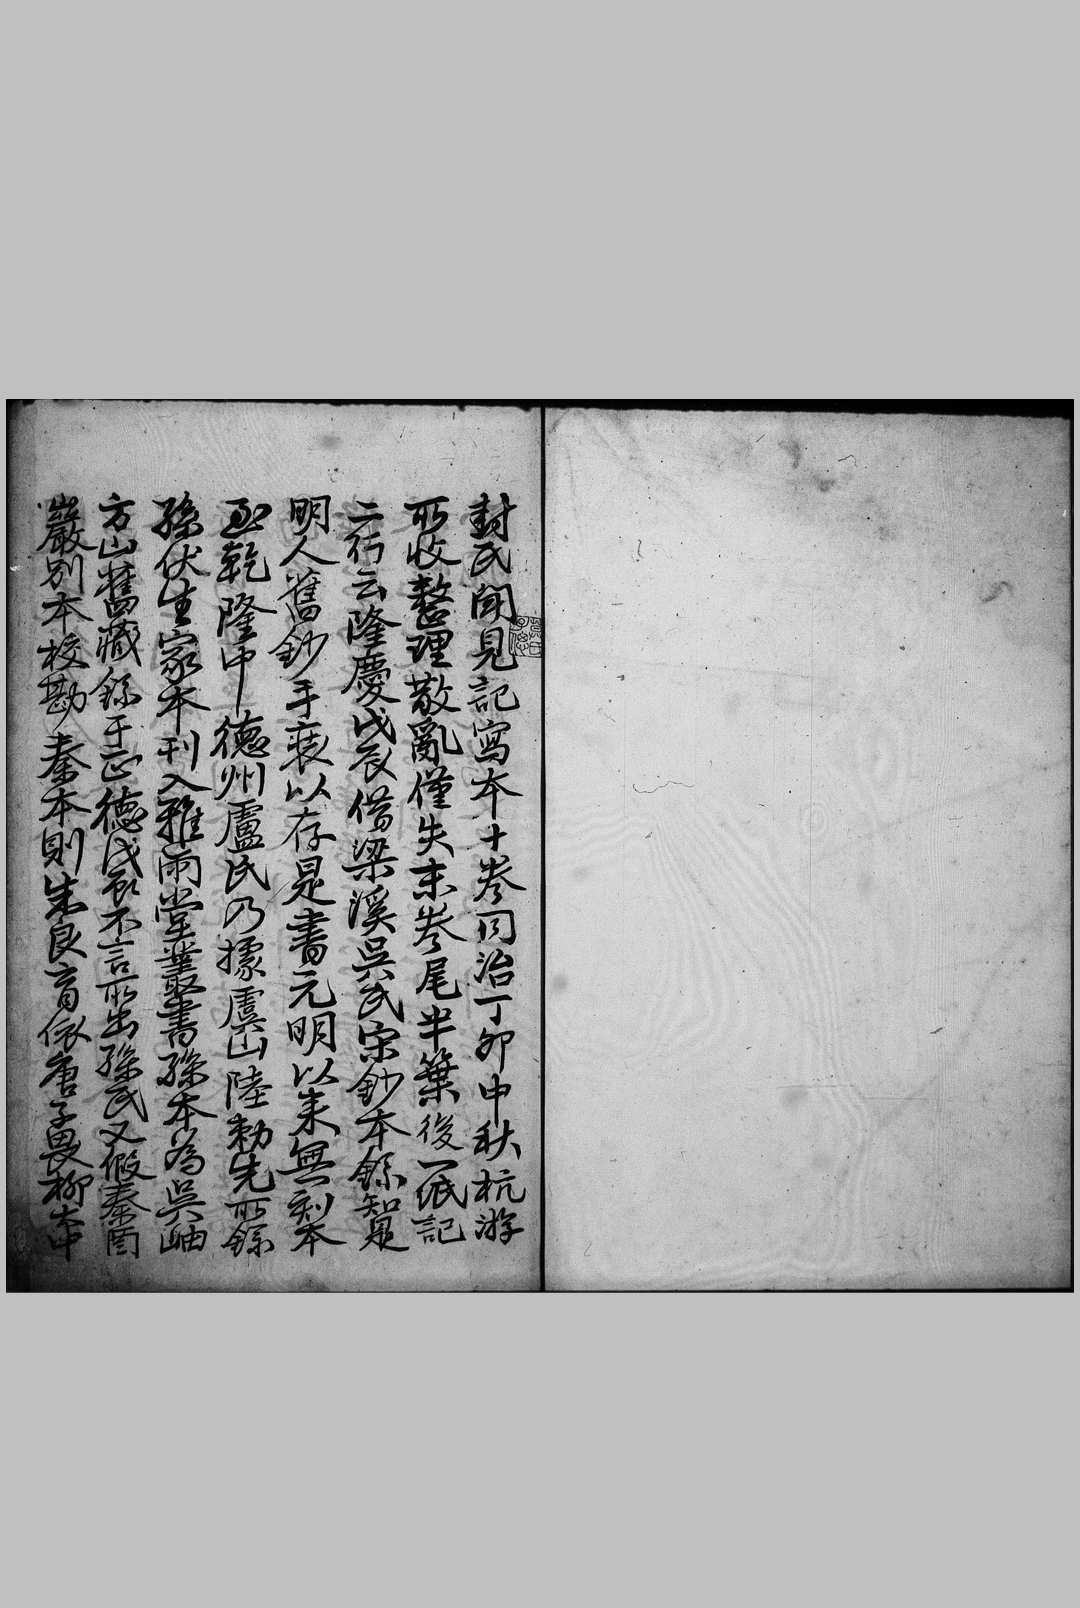 封氏聞見記寫本十卷同治丁卯中秋杭游
所收整理散亂僅失末卷尾半葉後一紙記
二行云隆慶戊辰借梁溪吳氏宋鈔本錄知是
明人舊鈔手裝以存是書元明以來無刻本
至乾隆中德州盧氏乃據虞山陸勅先所錄
孫伏生家本刊入雅雨堂叢書孫本為吳岫
方山舊藏錄于正德戊辰不言所出孫氏又假秦酉
巖別本校勘秦本則朱良育依唐子畏柳大中